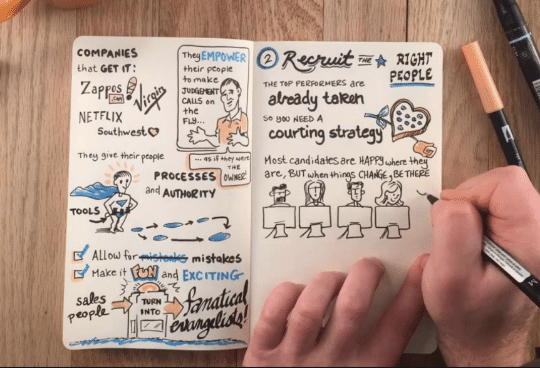 COMPANIES
that GET IT:
Zappos
.com
Virgin
NETFLIX
Southwest
They EMPOWER
their people
to make
JUDGEMENT
CALLS on
the
FLY...
... as if they were
THE
OWNER!
They give their people
PROCESSES
and AUTHORITY
TOOLS
Allow for misteaks mistakes
Make it FUN and EXCITING
sales
people
TURN
INTO
fanatical
evangelists!
2 Recruit THE RIGHT
PEOPLE
THE TOP PERFORMERS are
already taken
SO YOU NEED A
courting strategy
Most candidates are HAPPY where they
are, BUT when things CHANGE, BE THERE